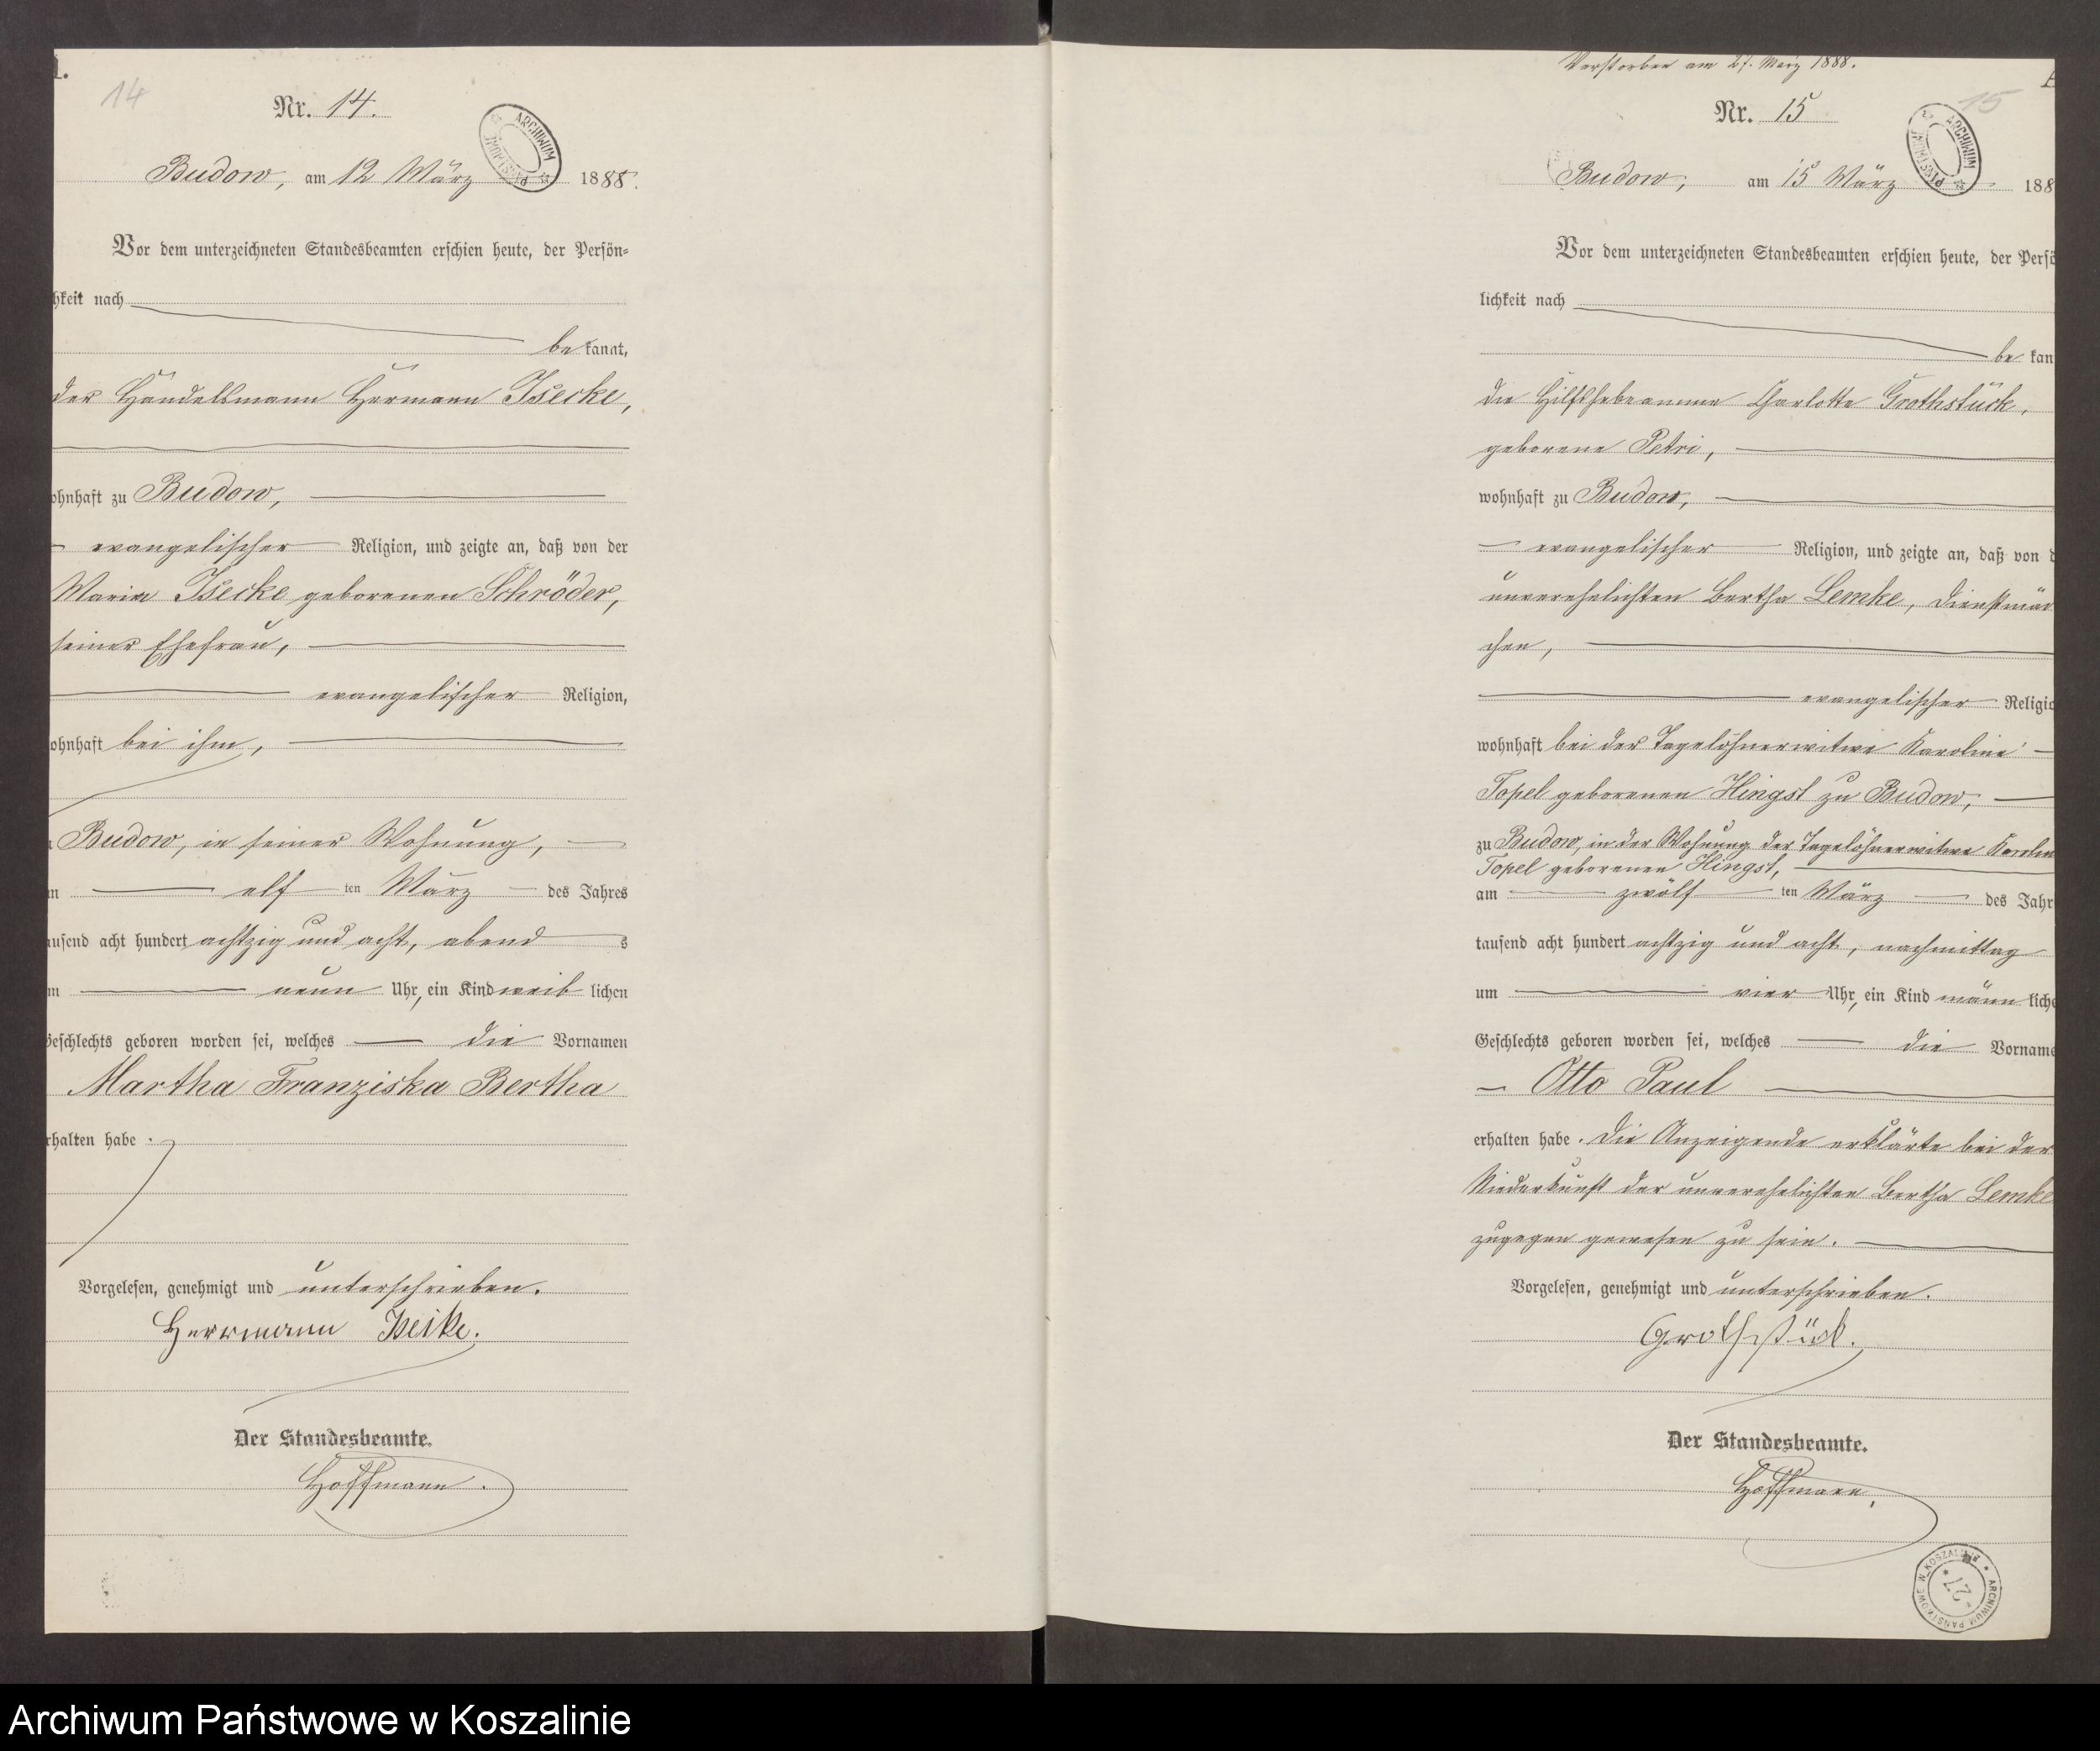 14
Nr. 14.
ARCHIWUM PAŃSTWOWE
Budow, am 12 März 1888.
Vor dem unterzeichneten Standesbeamten erschien heute, der Persön=
hkeit nach
be kannt,
der Handelsmann Hermann Isecke,
ohnhaft zu Budow,
evangelischer Religion, und zeigte an, daß von der
Maria Isecke geborenen Schröder,
seiner Ehefrau,
evangelischer Religion,
ohnhaft bei ihm,
Budow, in seiner Wohnung,
m elf ten März des Jahres
ausend acht hundert achtzig und acht, abend s
m neun Uhr, ein Kind weib lichen
Geschlechts geboren worden sei, welches die Vornamen
Martha Franziska Bertha
rhalten habe.
Vorgelesen, genehmigt und unterschrieben.
Herrmann Iseike.
Der Standesbeamte.
Hoffmann.
Verstorben am 27. März 1888.
15
Nr. 15
ARCHIWUM PAŃSTWOWE
Budow, am 15 März 188
Vor dem unterzeichneten Standesbeamten erschien heute, der Persö
lichkeit nach
be kan
die Hilfshebeamme Charlotte Grothstück,
geborene Petri,
wohnhaft zu Budow,
evangelischer Religion, und zeigte an, daß von d
unverehelichten Bertha Lemke, Dienstmäd
chen,
evangelischer Religio
wohnhaft bei der Tagelöhnerwitwe Karoline
Topel geborenen Hingst zu Budow,
zu Budow, in der Wohnung der Tagelöhnerwitwe Karolin
Topel geborenen Hingst,
am zwölf ten März des Jahr
tausend acht hundert achtzig und acht, nachmittag
um vier Uhr, ein Kind männ liche
Geschlechts geboren worden sei, welches die Vorname
Otto Paul
erhalten habe. Die Anzeigende erklärte bei der
Niederkunft der unverehelichten Bertha Lemke
zugegen gewesen zu sein.
Vorgelesen, genehmigt und unterschrieben.
Grothstück.
Der Standesbeamte.
Hoffmann.
ARCHIWUM PAŃSTWOWE W KOSZALINIE
27
Archiwum Państwowe w Koszalinie